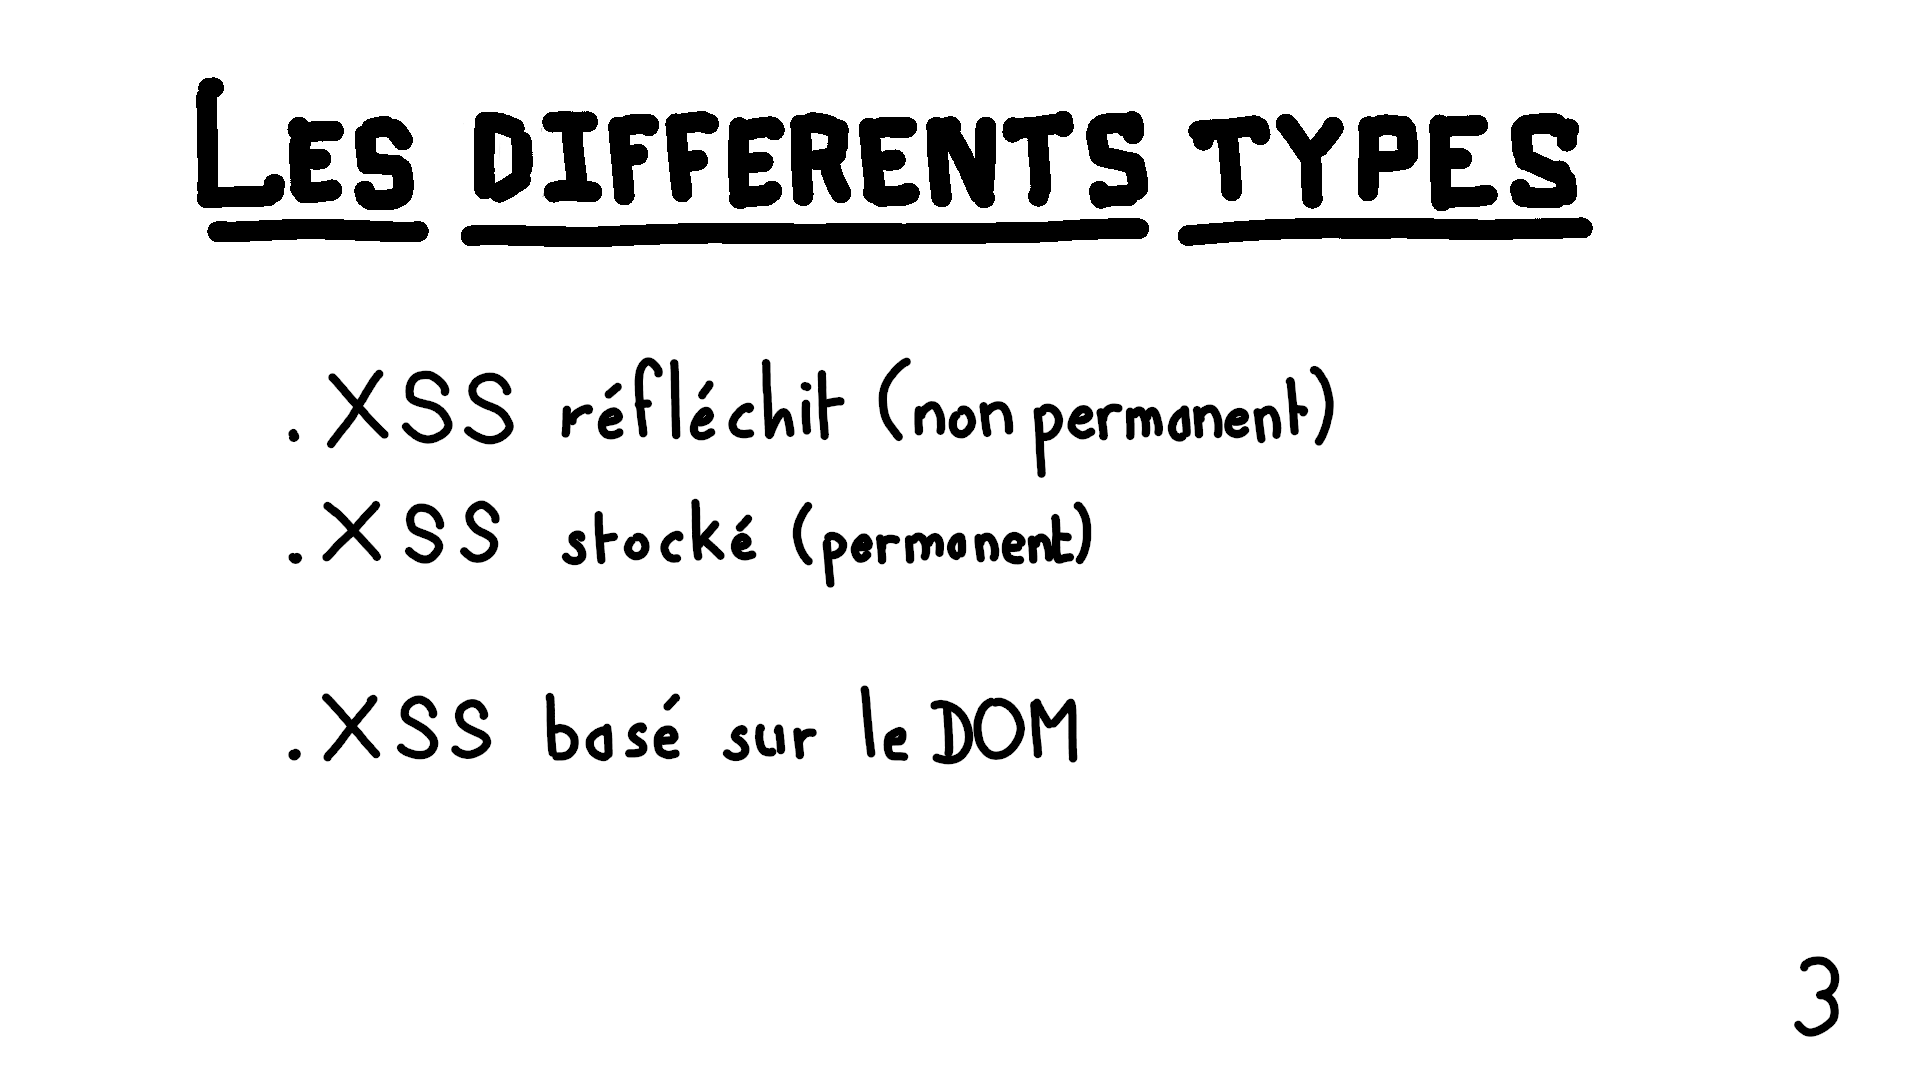 LES DIFFERENTS TYPES
. XSS réfléchit (non permanent)
. XSS stocké (permanent)
. XSS basé sur le DOM
3